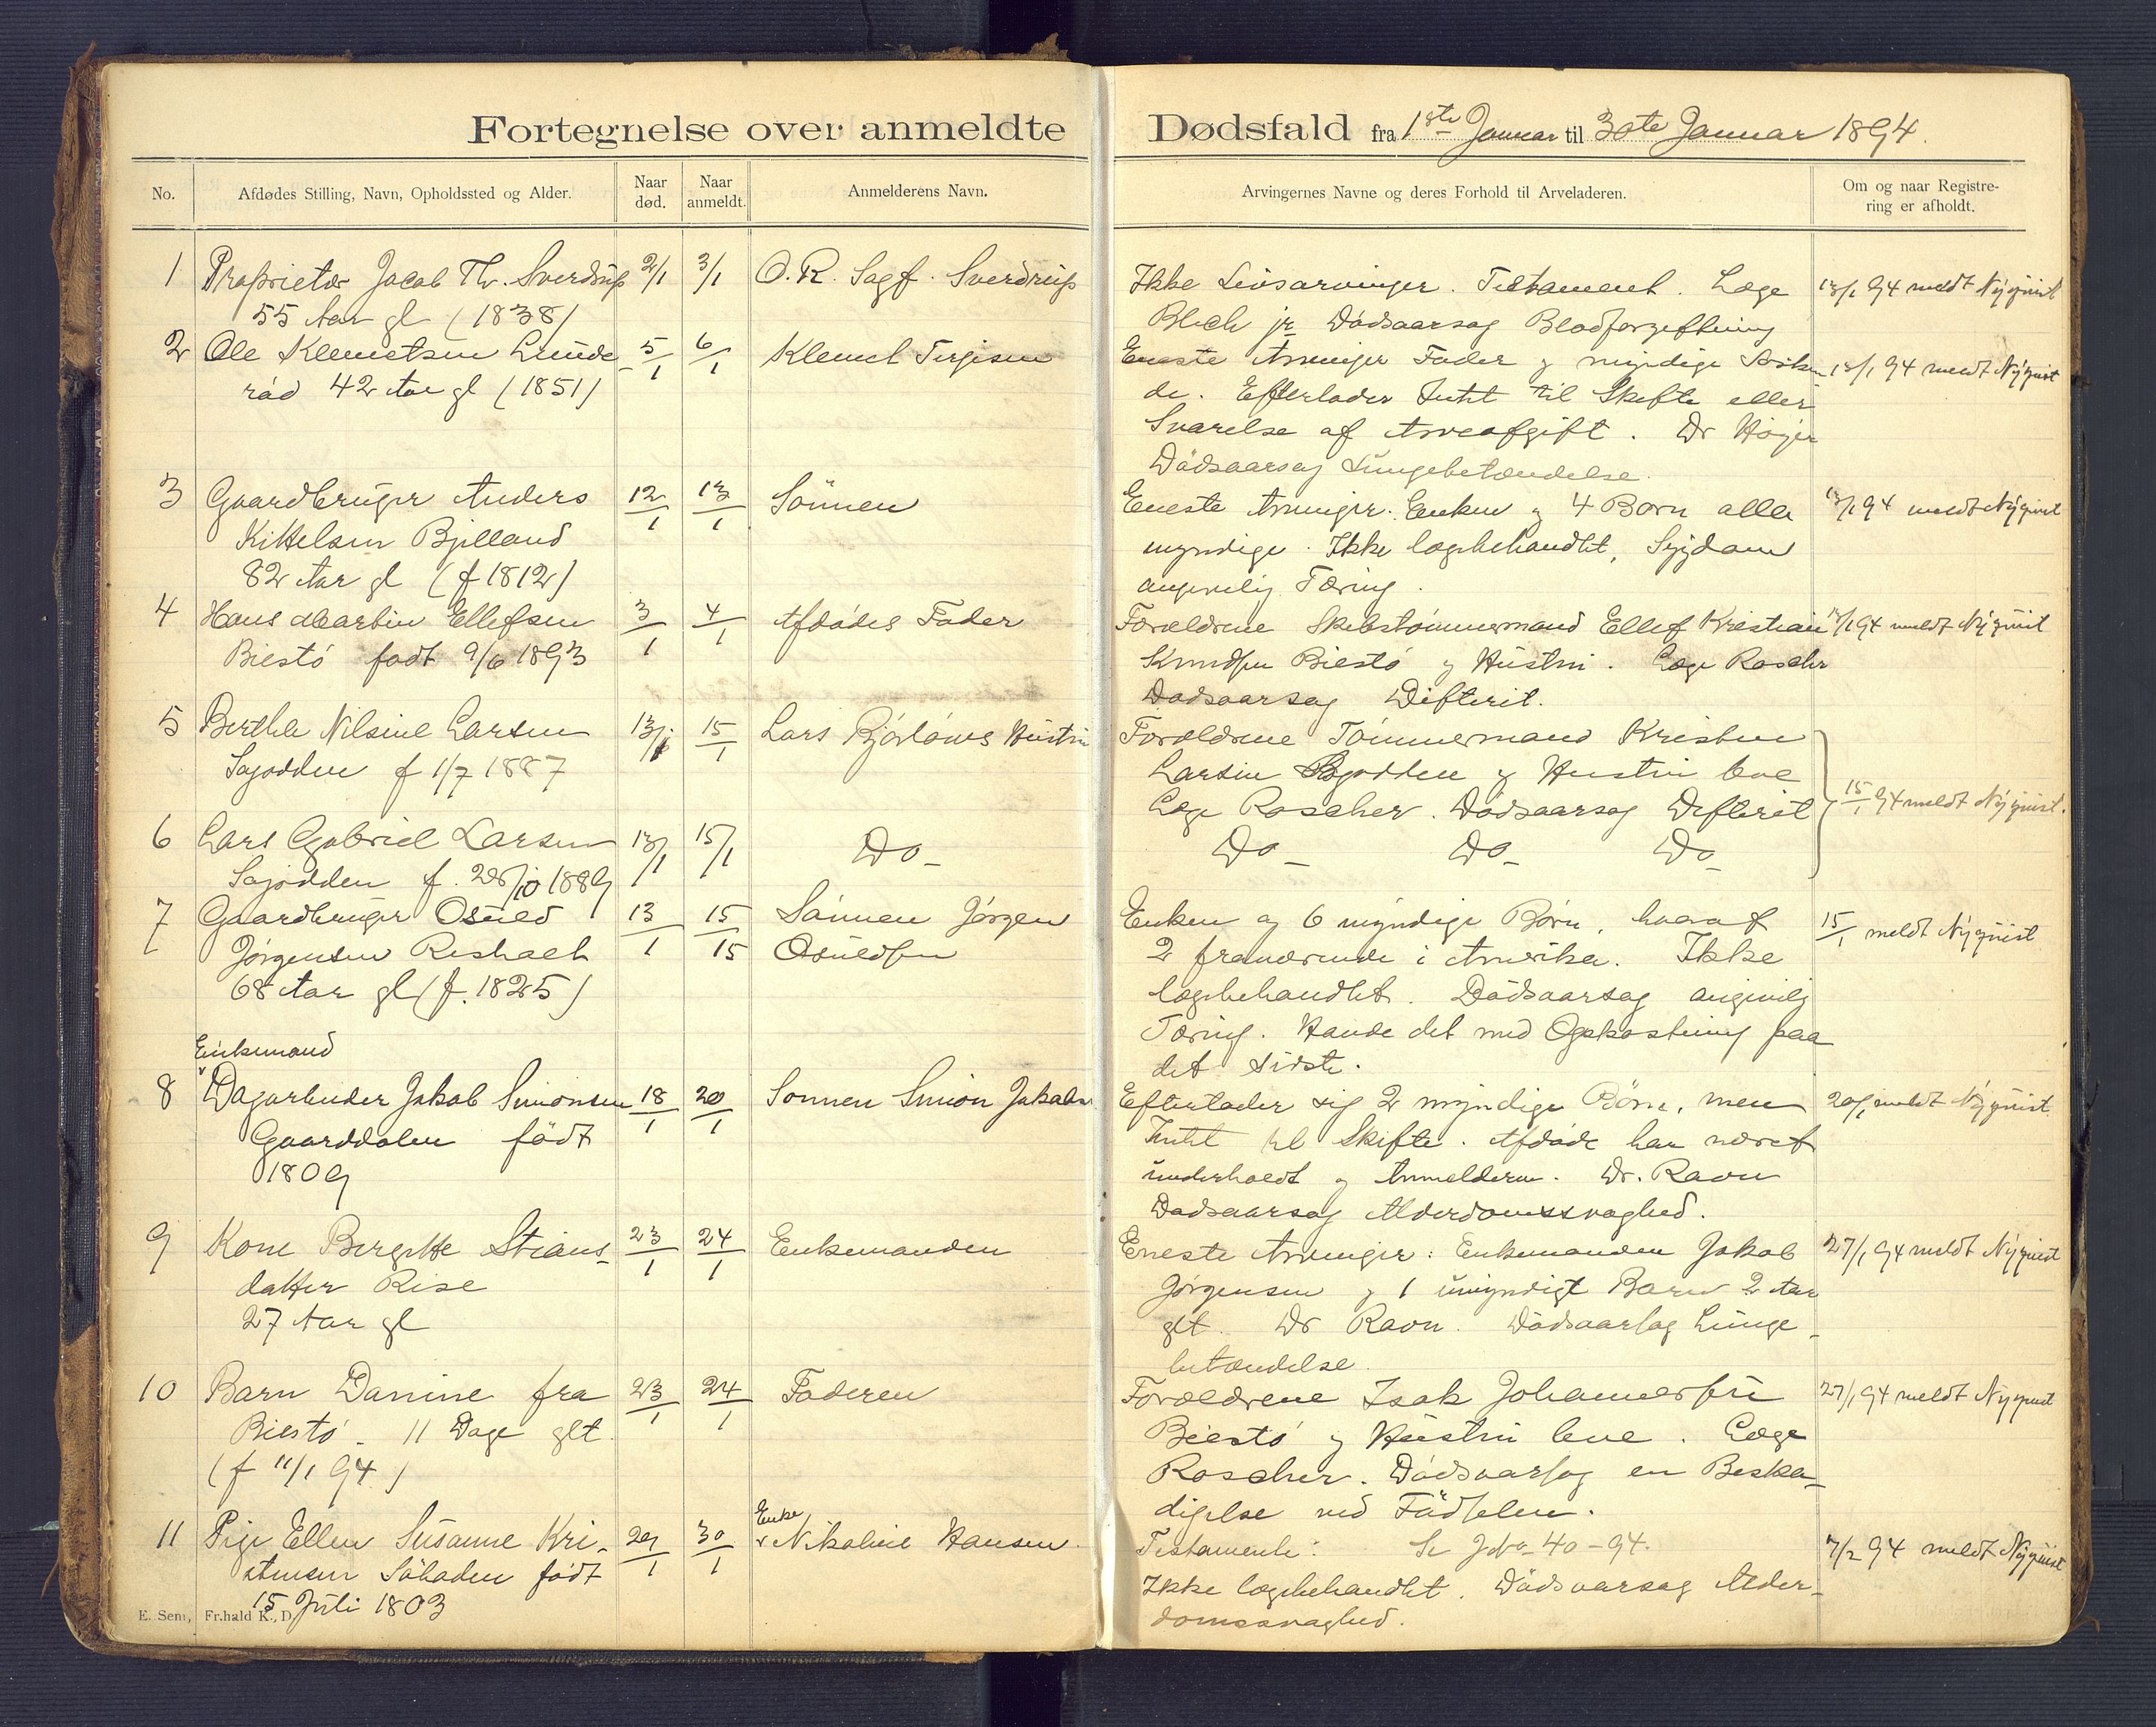 Fortegnelse over anmeldte Dødsfald fra 1ste Januar til 30te Januar 1894.
No. Afdødes Stilling, Navn, Opholdssted og Alder. Naar død. Naar anmeldt. Anmelderens Navn. Arvingernes Navne og deres Forhold til Arveladeren. Om og naar Registrering er afholdt.
1 Proprietær Jacob Th. Sverdrup 2/1 3/1 O. R. Sagf. Sverdrup
55 Aar gl (1838)
Ikke Livsarvinger. Testament. Læge 13/1 94 meldt Nyquist
Blich jr Dödsaarsag Blodforgiftning
2 Ole Klemetsen Lunde- 5/1 6/1 Klemet Terjesen
röd 42 Aar gl (1851)
Eneste Arvinger Fader og myndige Sösken- 13/1 94 meldt Nyquist
de. Efterlader Intet til Skifte eller
Svarelse af Arveafgift. Dr Höyer
Dödsaarsag Lungebetændelse.
3 Gaardbruger Anders 12/1 13/1 Sönnen
Kittelsen Bjelland
82 Aar gl (f 1812)
Eneste Arvinger: Enken og 4 Börn alle 13/1 94 meldt Nyquist
myndige. Ikke lægebehandlet, Sygdom
angivelig Tæring.
4 Hans Martin Ellefsen 3/1 4/1 Afdödes Fader
Biestö födt 9/6 1893
Forældrene Skibstömmermand Ellef Kristian 13/1 94 meldt Nyquist
Knudsen Biestö og Hustru. Læge Roscher
Dödsaarsag Difterit.
5 Berthe Nilsine Larsen 13/1 15/1 Lars Björlöws Hustru
Sagodden f 1/7 1887
Forældrene Tömmermand Kristen
Larsen Sagodden og Hustru leve 15/1 94 meldt Nyquist.
Læge Roscher. Dödsaarsag Difterit
6 Lars Gabriel Larsen 13/1 15/1 Do-
Sagodden f. 28/10 1889
Do- Do- Do
7 Gaardbruger Osuld 13/1 15/1 Sönnen Jörgen
Jörgensen 15 Osuldsen
68 Aar gl (f. 1825)
Enken og 6 myndige Börn, hvoraf 15/1 meldt Nyquist
2 fraværende i Amerika. Ikke
lægebehandlet. Dödsaarsag angivelig
Tæring. Havde det med Opkastning paa
det sidste.
Enkemand
8 Dagarbeider Jakob Simonsen 18/1 20/1 Sönnen Simon Jakobs
Gaarddalen födt
1809
Efterlader sig 2 myndige Börn, men 20/1 meldt Nyquist.
Intet til Skifte. Afdöde har været
underholdt af Anmelderen. Dr. Ravn
Dödsaarsag Alderdomssvaghed.
9 Kone Birgitte Stians- 23/1 24/1 Enkemanden
datter Rise
27 Aar gl
Eneste Arvinger: Enkemanden Jakob 27/1 94 meldt Nyquist
Jörgensen og 1 umyndigt Barn 2 Aar
glt. Dr Ravn. Dödsaarsag Lunge-
betændelse.
10 Barn Danine fra 23/1 24/1 Faderen
Biestö. 11 Dage glt.
(f 11/1 94.)
Forældrene Isak Johannessen 27/1 94 meldt Nyquist
Biestö og Hustru leve. Læge
Roscher. Dödsaarsag en Beska-
digelse ved Födselen.
11 Pige Ellen Susanne Kri- 29/1 30/1 Enke Nikoline Hansen.
stensen Söladen födt
15 Juli 1803
Testamente: Se J No 40-94. 7/2 94 meldt Nyquist
Ikke lægebehandlet. Dödsaarsag Alder-
domssvaghed.
E. Sem, Fr.hald K., D